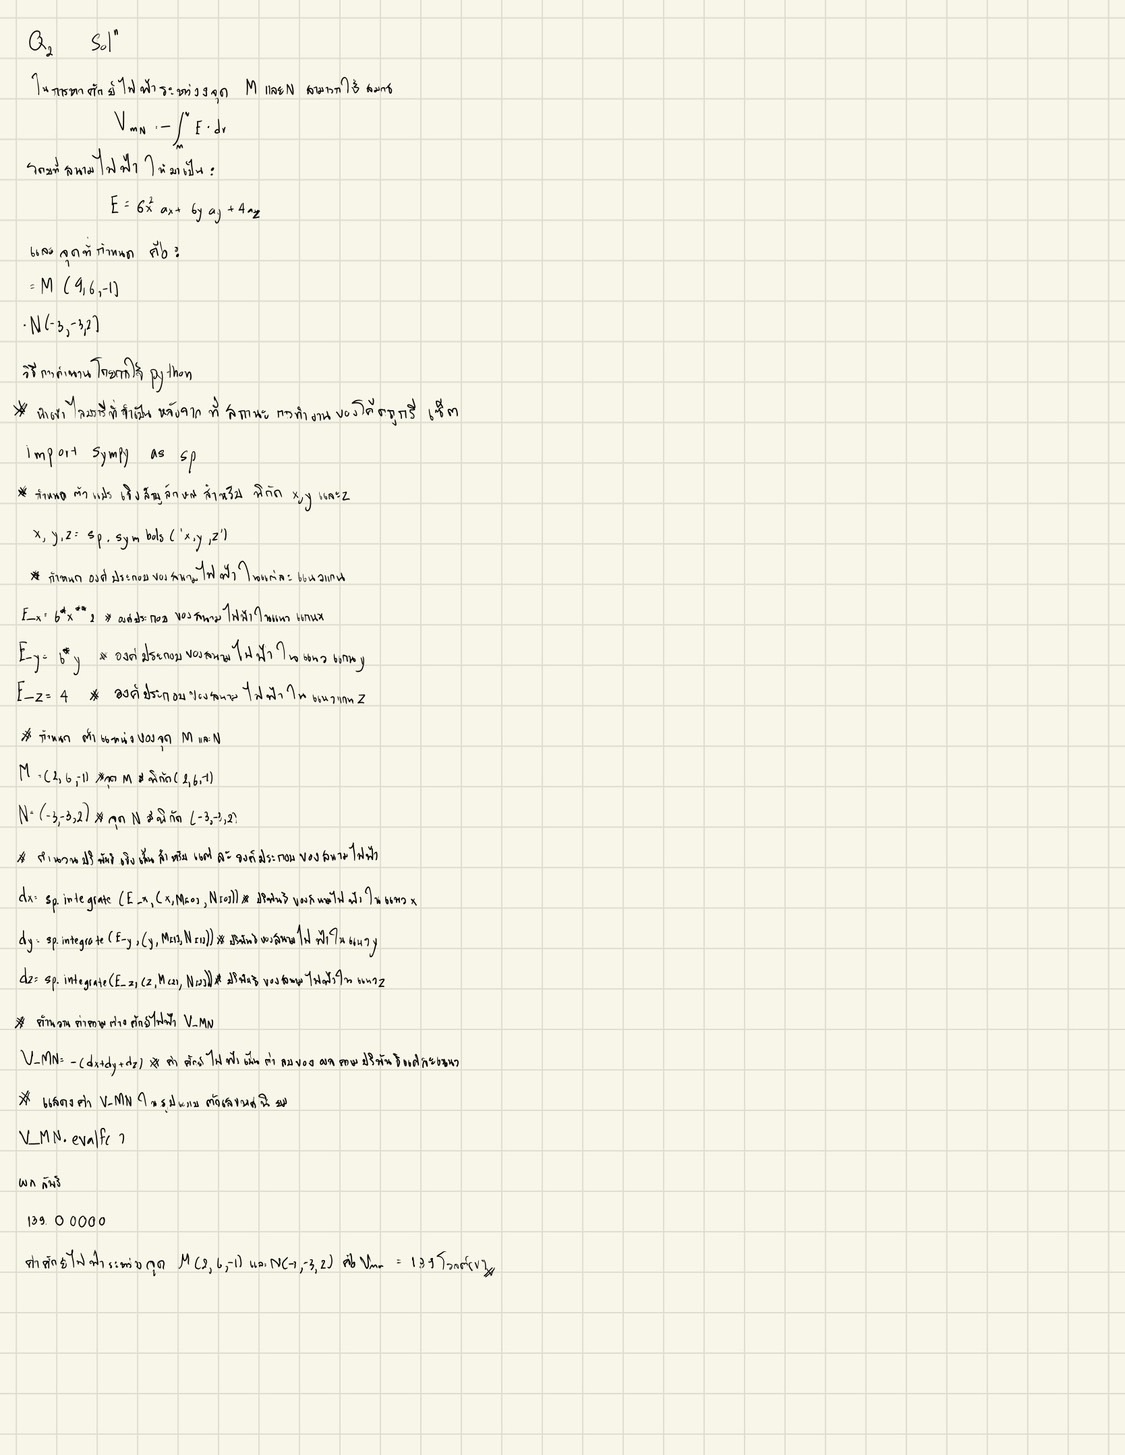 Q2 Solⁿ
ในการหาศักย์ไฟฟ้าระหว่างจุด M และ N สามารถใช้สมการ
V_MN = -∫_M^N E · dr
โดยที่สนามไฟฟ้าให้มาเป็น :
E = 6x² ax + 6y ay + 4az
และจุดที่กำหนด คือ :
= M (9,6,-1)
· N(-3,-3,2)
วิธีการคำนวน โดยการใช้ python
import sympy as sp
* กำหนด ตัวแปร เชิงสัญลักษณ์ สำหรับ พิกัด x,y และ z
x, y, z = sp. symbols ('x,y,z')
* กำหนด องค์ประกอบของสนามไฟฟ้าในแต่ละแนวแกน
E_x = 6*x**2 * องค์ประกอบ ของสนามไฟฟ้าในแนวแกน x
E_y = 6*y * องค์ประกอบของสนามไฟฟ้าในแนวแกน y
E_z = 4 * องค์ประกอบของสนามไฟฟ้าในแนวแกน z
* กำหนด ตำแหน่งของจุด M และ N
M = (2,6,-1) * จุด M มีพิกัด (2,6,-1)
N = (-3,-3,2) * จุด N มีพิกัด (-3,-3,2)
* คำนวนปริพันธ์เชิงเส้นสำหรับแต่ละองค์ประกอบของสนามไฟฟ้า
dx = sp. integrate (E_x, (x, M[0], N[0])) * ปริพันธ์ของสนามไฟฟ้าในแนว x
dy = sp. integrate (E_y, (y, M[1], N[1])) * ปริพันธ์ของสนามไฟฟ้าในแนว y
dz = sp. integrate (E_z, (z, M[2], N[2])) * ปริพันธ์ของสนามไฟฟ้าในแนว z
* คำนวนค่าความต่างศักย์ไฟฟ้า V_MN
V_MN = -(dx+dy+dz) * ค่าศักย์ไฟฟ้าเป็นค่าลบของผลรวมปริพันธ์แต่ละแนว
* แสดงค่า V_MN ในรูปแบบตัวเลขทศนิยม
V_MN. evalf( )
ผลลัพธ์
139.00000
ค่าศักย์ไฟฟ้าระหว่างจุด M(2,6,-1) และ N(-3,-3,2) คือ V_MN = 139 โวลต์ (V)